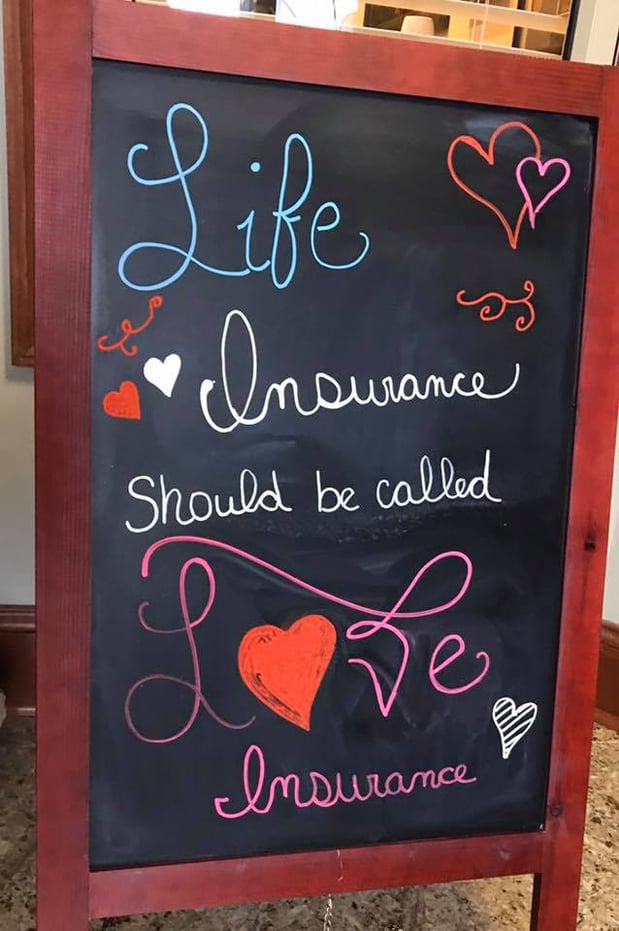 Life
Insurance
Should be called
Love
Insurance